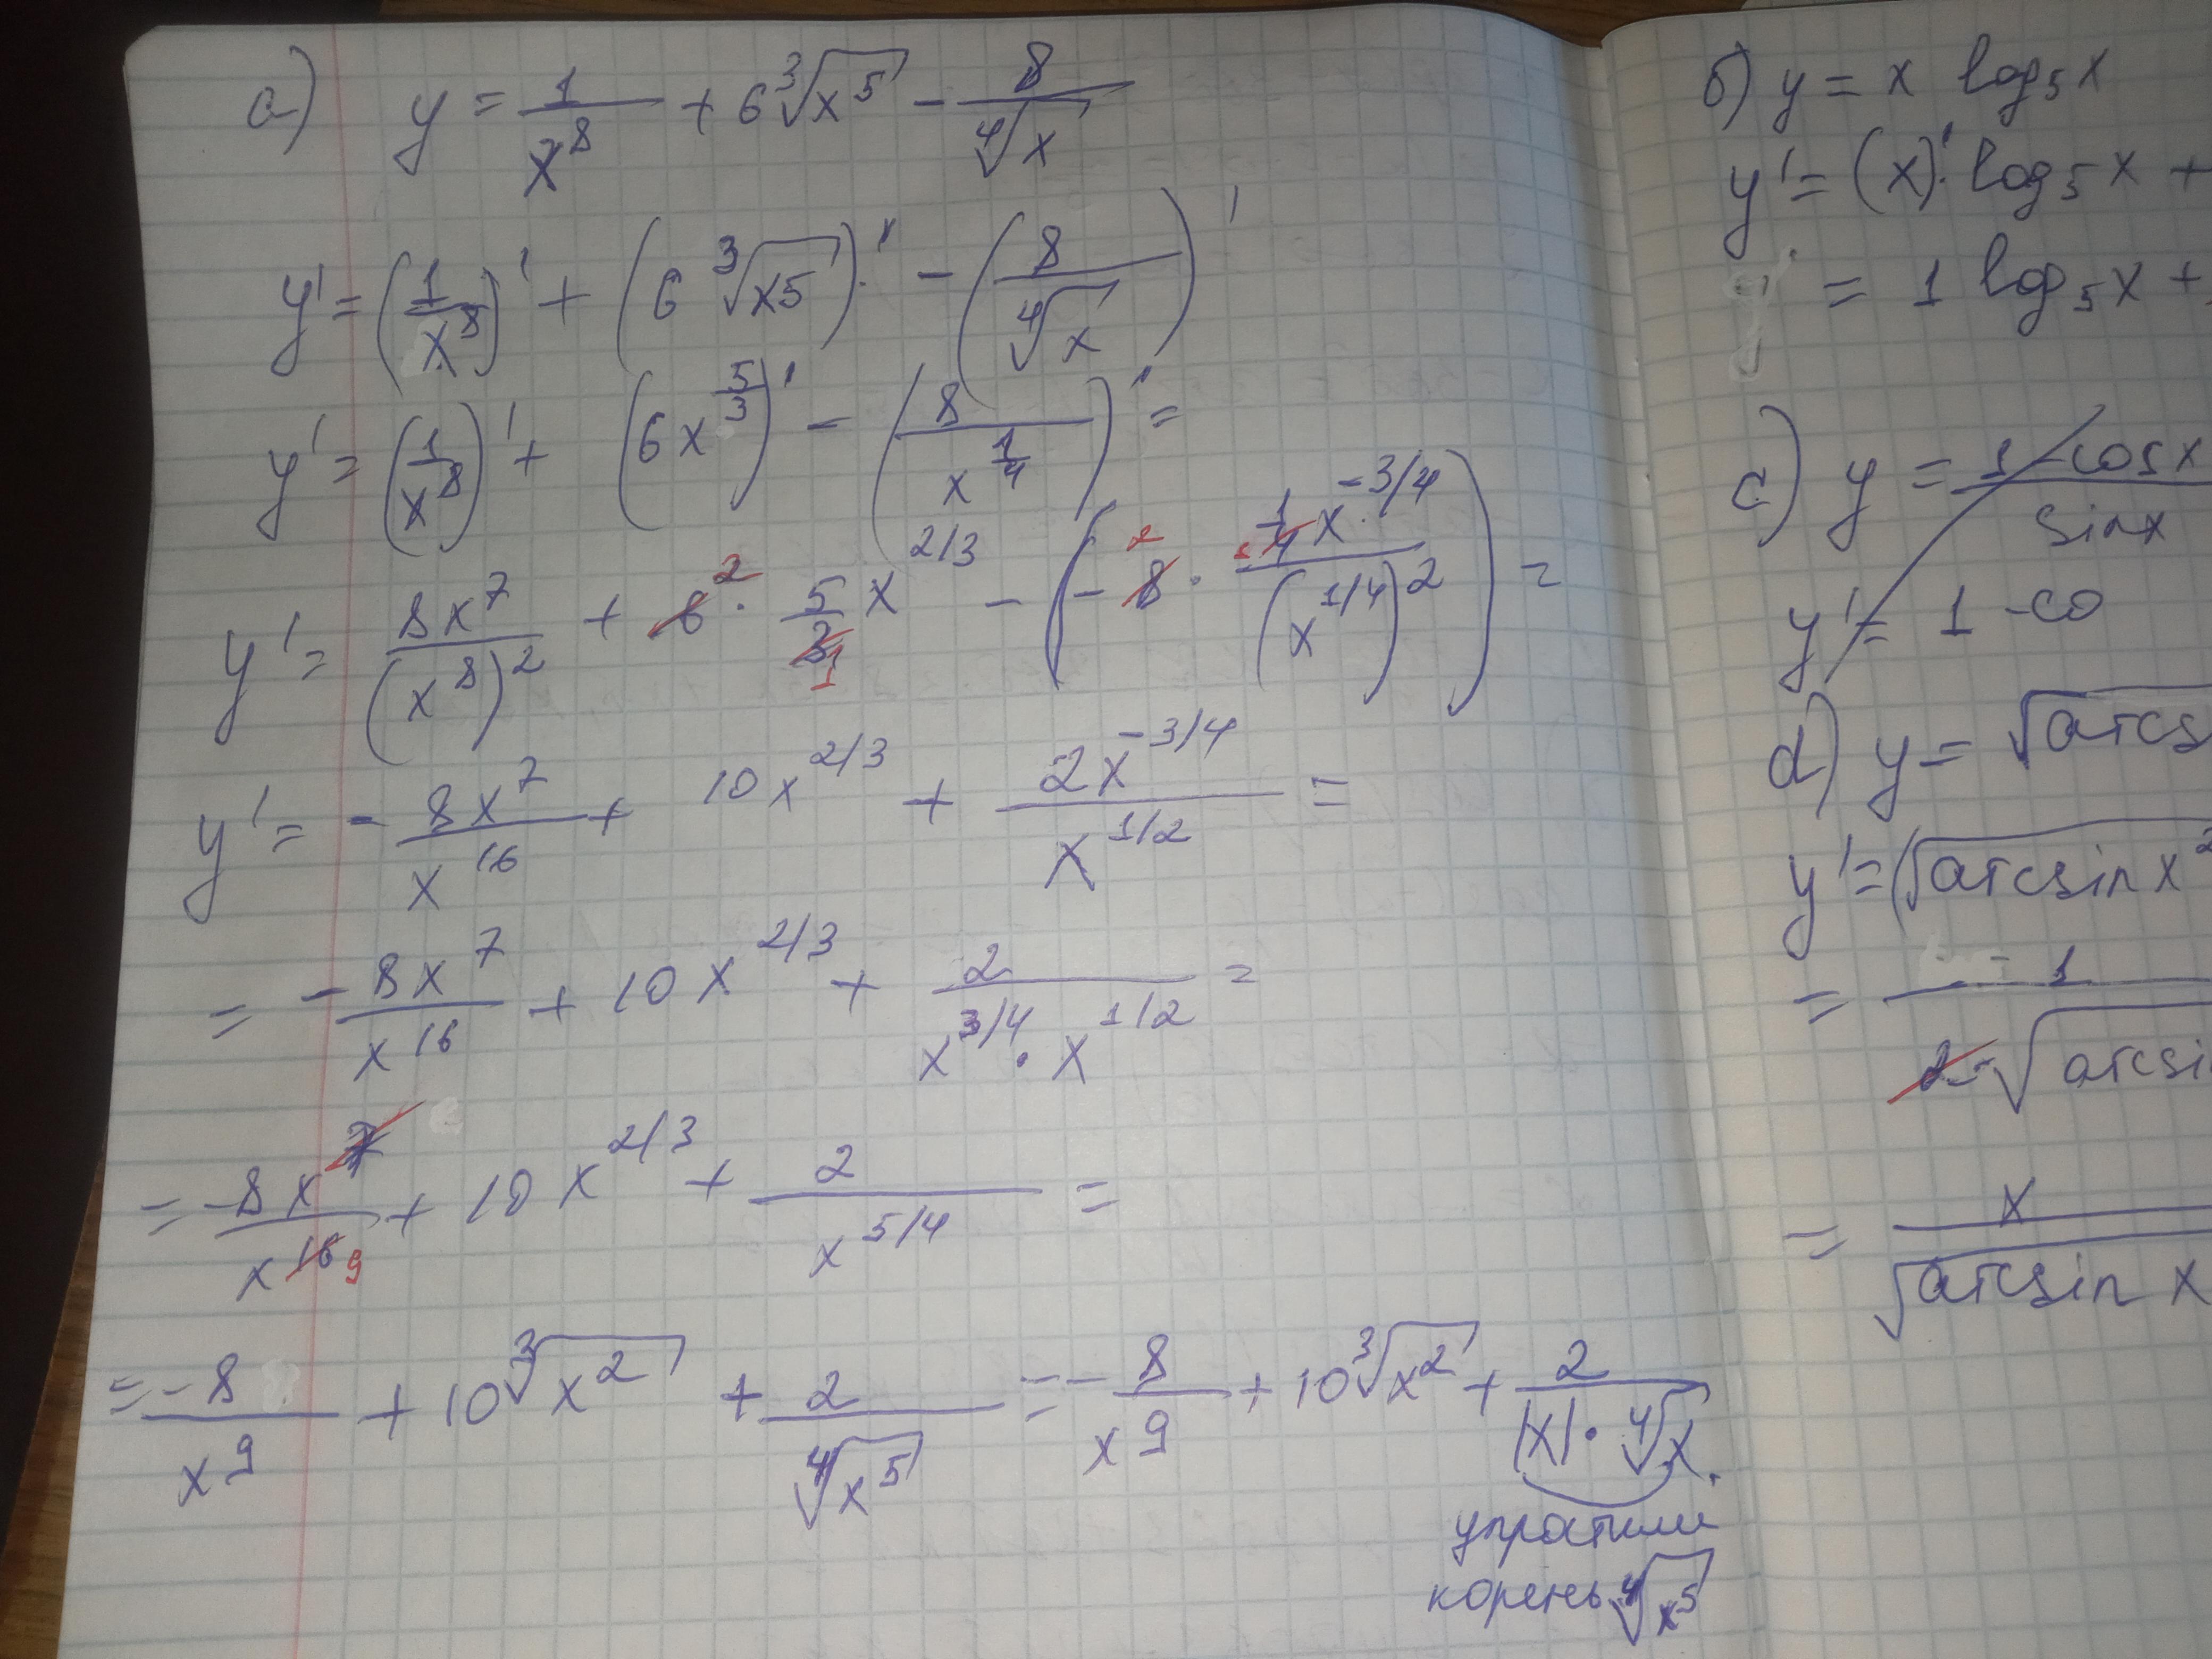 a) y = 1/x⁸ + 6∛x⁵ - 8/∜x
y' = (1/x⁸)' + (6∛x5)' - (8/∜x)'
y' = (1/x⁸)' + (6x^(5/3))' - (8/x^(1/4))' =
y' = 8x⁷/(x⁸)² + 6² · 5/3₁ x^(2/3) - (- 8² · 1/4 x^(-3/4)/(x^(1/4))²) =
y' = - 8x⁷/x¹⁶ + 10x^(2/3) + 2x^(-3/4)/x^(1/2) =
= - 8x⁷/x¹⁶ + 10x^(2/3) + 2/(x^(3/4) · x^(1/2)) =
= -8x⁷/x¹⁶ ₉ + 10x^(2/3) + 2/x^(5/4) =
= -8/x⁹ + 10∛x² + 2/∜x⁵ = - 8/x⁹ + 10∛x² + 2/(|x| · ∜x).
упратили
корень ∜x⁵
б) y = x log₅x
y' = (x)' · log₅x +
= 1 log₅x +
c) y = 1-cosx/sinx
y' = 1 -co
d) y = √arcs
y' = (√arcsin x²
= 1/2·√arcsi
= x/√arcsin x